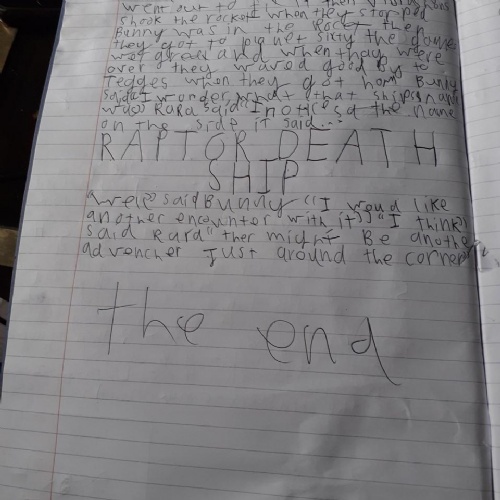 went out to
shook the rocket when they stopped
Bunny was in the
they got to planet sixty the
was great and when they were
over they waved good B to
Tegges when they got home Bunny
said "I wonder what that ships name
was" Rara said "I noticed the name
on the side it said...
RAPTOR DEATH
SHIP
"well" said Bunny "I woud like
another encounter with it" "I think"
said Rara "ther might Be another
advencher just around the corner
the end